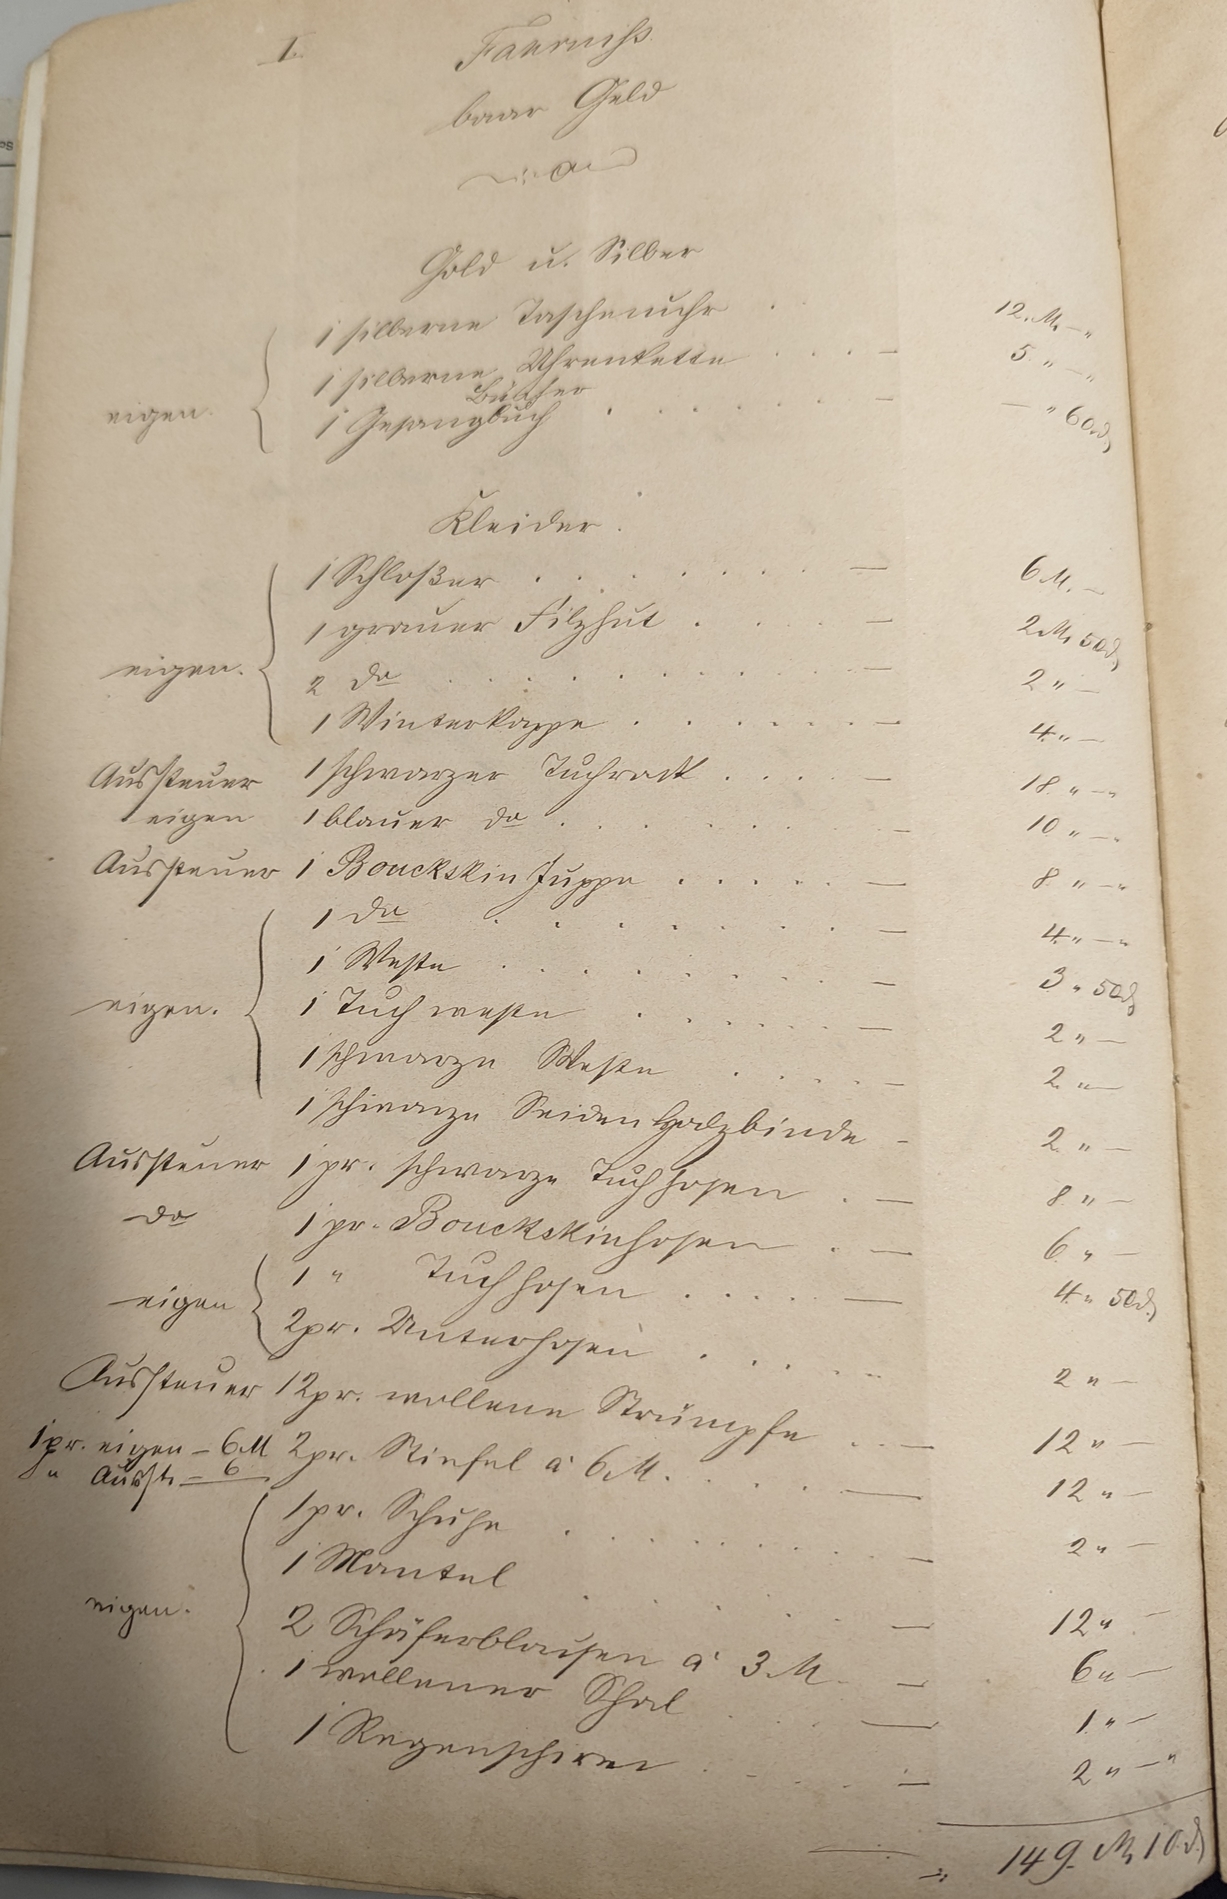 I. Fahrniß
baar Geld
—:0:—
Gold u. Silber
1 silberne Taschenuhr . 12. M. — "
1 silberne Uhrenkette . . . . — 5. " — "
Bücher
eigen. 1 Gesangbuch . . . . . . — — " 60 ₰
Kleider.
1 Schloßer . . . . . . . — 6 M. —
1 grauer Filzhut . . . . — 2 M. 50 ₰
eigen. 2 do . . . . . . . . — 2 " —
1 Winterkappe . . . . . . — 4. " —
Aussteuer 1 schwarzer Tuchrock . . . . — 18. " — "
eigen 1 blauer do . . . . . . . — 10 " — "
Aussteuer 1 Bouckskin Juppe . . . . . — 8. " — "
1 do . . . . . . . — 4. " — "
1 Weste . . . . . . . . — 3 " 50 ₰
eigen. 1 Tuchweste . . . . . . — 2 " —
1 schwarze Weste . . . . . — 2. " —
1 schwarze Seiden Halzbinde - 2. " —
Aussteuer 1 pr. schwarze Tuchhosen . — 8 " —
do 1 pr. Bouckskinhosen . — 6. " —
1 " Tuchhosen . . . . . — 4. " 50 ₰
eigen 2 pr. Unterhosen . . . . . 2 " —
Aussteuer 12 pr. wollene Strümpfe . . — 12 " —
1 pr. eigen — 6 M 2 pr. Stiefel a 6 M. . . . — 12 " —
" Ausst. — 6
1 pr. Schuhe . . . . . . . — 2 " —
1 Mantel . . . . . . — 12 " —
eigen. 2 Schäferblousen a 3 M. — 6 " —
1 wollener Schal . . . — 1. " —
1 Regenschirm . . . . . — 2 " — "
149. M. 10 ₰